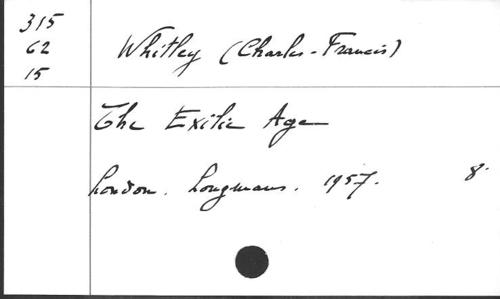 315
62
15
Whitley (Charles-Francis)
The Exilic Age
London. Longmans. 1957. 8°